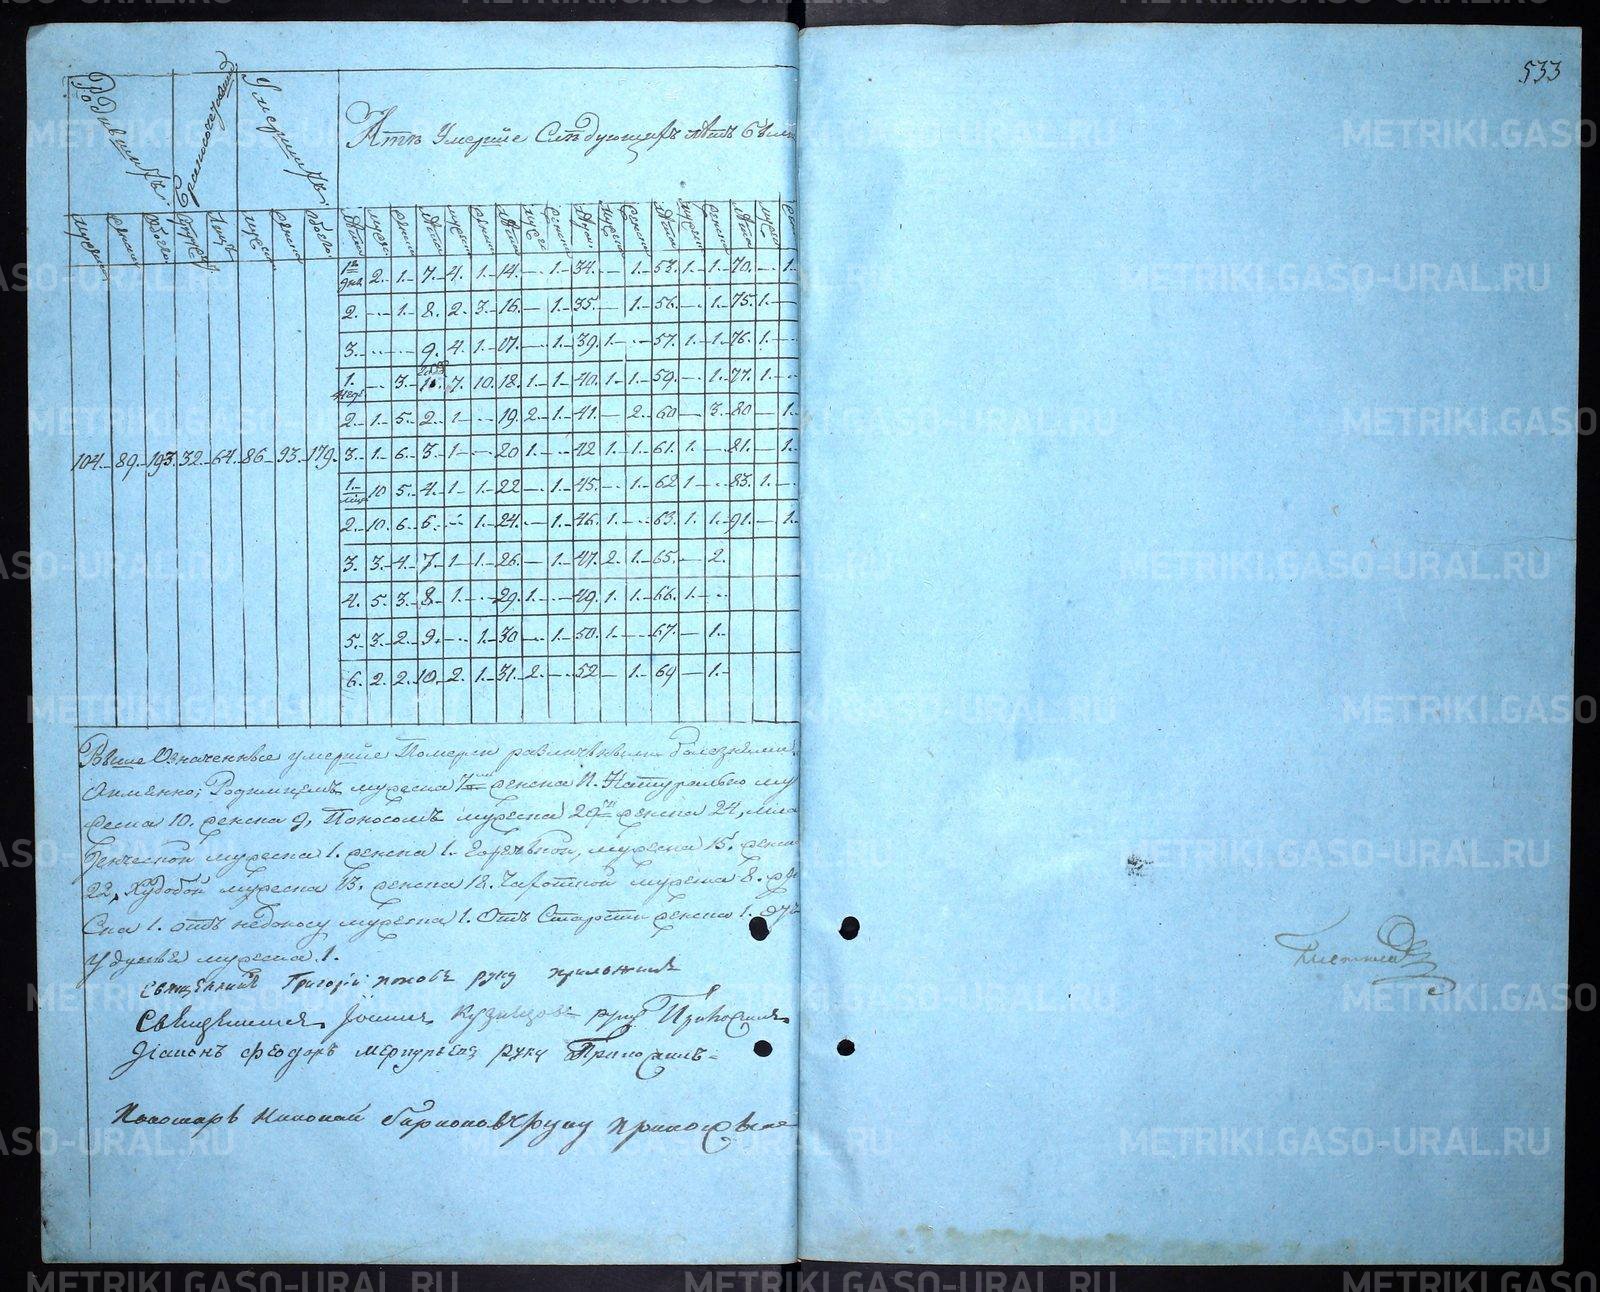 533
Родившихъ
Бракосочетавши
Умершихъ
Умершіе Слѣдующихъ лѣтъ
мужеска женска обоего лицъ мужеска женска обоего
лѣта мужес женска лѣта мужес женска лѣта мужес женска лѣта мужес женска лѣта мужес женска лѣта мужес
1 2. 1. 7. 4. 1. 14. — 1. 34. — 1. 53. 1. 1. 70. — 1.
2. — 1. 8. 2. 3. 16. — 1. 35. — 1. 56. — 1. 75. 1. —
3. — — 9. 4. 1. 17. — 1. 39. 1. — 57. 1. 1. 76. 1. —
1. — 3. 1. 7. 10. 18. 1. 1. 40. 1. 1. 59. — 1. 77. 1. —
2. 1. 5. 2. 1 — 19. 2. 1. 41. — 2. 60 — 3. 80 — 1.
104. 89. 193. 32. 64. 86. 93. 179. 3. 1. 6. 3. 1 — 20 1. — 42 1. 1. 61. 1. — 81. — 1.
1. 10 5. 4. 1 1. 22 — 1. 45. — 1. 62 1 — 83. 1. —
2. 10. 6. 6. — 1. 24. — 1. 46. 1. — 63. 1. 1. 91. — 1.
3. 3. 4. 7. 1 1. 26. — 1. 47. 2. 1. 65. — 2.
4. 5. 3. 8. 1. — 29. 1. — 49. 1. 1. 66. 1. —
5. 3. 2. 9. — 1. 30 — 1. 50. 1. — 67. — 1.
6. 2. 2. 10. 2. 1. 31. 2. — 52 — 1. 69 — 1.
Выше Означенные умершіе Померли различными болезнями
Аимянно; Родимцемъ мужеска женска Натурально му
жеска 10. женска 9, Поносомъ мужеска 29 женска 24, мла
денческой мужеска 1. женска 1. Горячкой, мужеска 15. женс
22, Худобой мужеска 13. женска 18. Чахоткой мужеска 8. же
Ска 1. отъ недоносу мужеска 1. Отъ Старости женска 1.
удушья мужеска 1.
Священникъ Григорій Поповъ руку приложилъ
Священникъ Іоаннъ Кузнецовъ руку Приложилъ
Діаконъ Феодоръ Меркурьевъ руку Приложилъ
Пономарь Николай руку приложилъ
METRIKI.GASO-URAL.RU